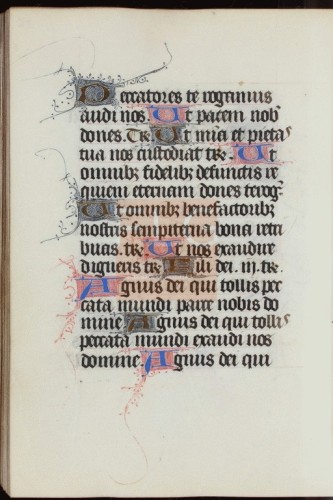 Peccatores te rogamus
audi nos Ut pacem nob̄
dones. Te r̄. Ut mīa et pietas
tua nos custodiat te r̄. Ut
omnibꝫ fidelibꝫ defunctis re
quiem eternam dones te roḡ.
Ut omnibꝫ benefactoribꝫ
nostris sempiterna bona retri
buas. te r̄. Ut nos exaudire
digneris te r̄. Fili dei. iii. te r̄.
Agnus dei qui tollis pec
cata mundi parce nobis do
mine Agnus dei qui tollis
peccata mundi exaudi nos
domine. Agnus dei qui